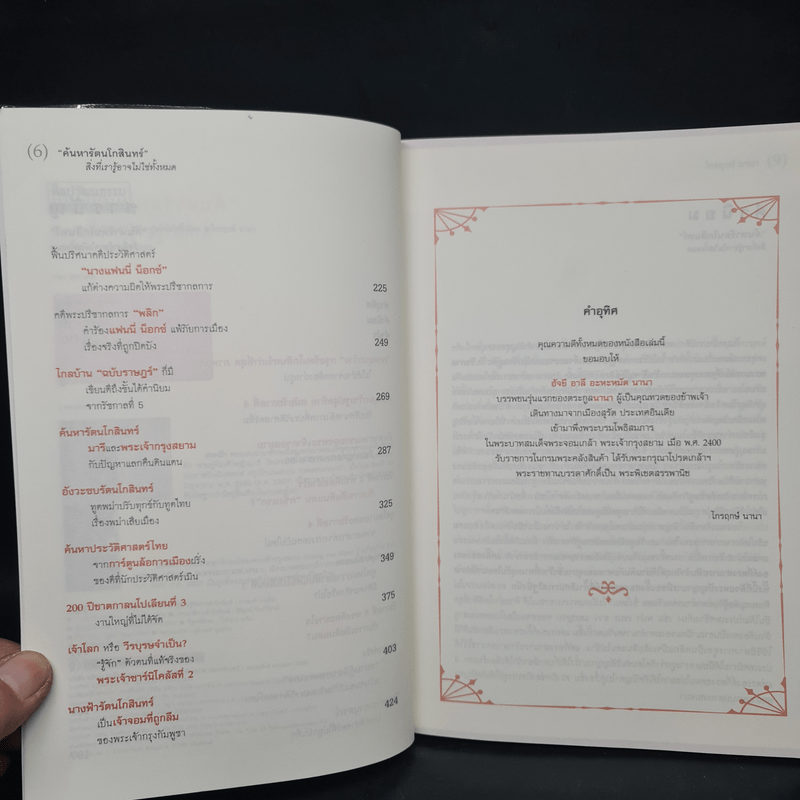 (6) "ค้นหารัตนโกสินทร์"
สิ่งที่เรารู้อาจไม่ใช่ทั้งหมด
ฟื้นปริศนาคดีประวัติศาสตร์
"นางแฟนนี่ น็อกซ์"
แก้ต่างความผิดให้พระปรีชากลการ 225
คดีพระปรีชากลการ "พลิก"
คำร้องแฟนนี่ น็อกซ์ แพ้ภัยการเมือง
เรื่องจริงที่ถูกปิดบัง 249
ไกลบ้าน "ฉบับราษฎร์" ที่มี
เขียนดีถึงขั้นได้คำนิยม
จากรัชกาลที่ 5 269
ค้นหารัตนโกสินทร์
มารีและพระเจ้ากรุงสยาม
กับปัญหาแลกคืนดินแดน 287
อังวะชบรัตนโกสินทร์
ทูตพม่าปรับทุกข์กับทูตไทย
เรื่องพม่าเสียเมือง 325
ค้นหาประวัติศาสตร์ไทย
จากการ์ตูนล้อการเมืองฝรั่ง
ของดีที่นักประวัติศาสตร์เมิน 349
200 ปีชาตกาลนโปเลียนที่ 3
งานใหญ่ที่ไม่ได้จัด 375
เจ้าโลก หรือ วีรบุรุษจำเป็น?
"รู้จัก" ตัวตนที่แท้จริงของ
พระเจ้าซาร์นิโคลัสที่ 2 403
นางฟ้ารัตนโกสินทร์
เป็นเจ้าจอมที่ถูกลืม
ของพระเจ้ากรุงกัมพูชา 424
คำอุทิศ
คุณความดีทั้งหมดของหนังสือเล่มนี้
ขอมอบให้
ฮัจยี อาลี อะหะหมัด นานา
บรรพชนรุ่นแรกของตระกูลนานา ผู้เป็นคุณทวดของข้าพเจ้า
เดินทางมาจากเมืองสุรัต ประเทศอินเดีย
เข้ามาพึ่งพระบรมโพธิสมภาร
ในพระบาทสมเด็จพระจอมเกล้า พระเจ้ากรุงสยาม เมื่อ พ.ศ. 2400
รับราชการในกรมพระคลังสินค้า ได้รับพระกรุณาโปรดเกล้าฯ
พระราชทานบรรดาศักดิ์เป็น พระพิเชตสรรพานิช
ไกรฤกษ์ นานา